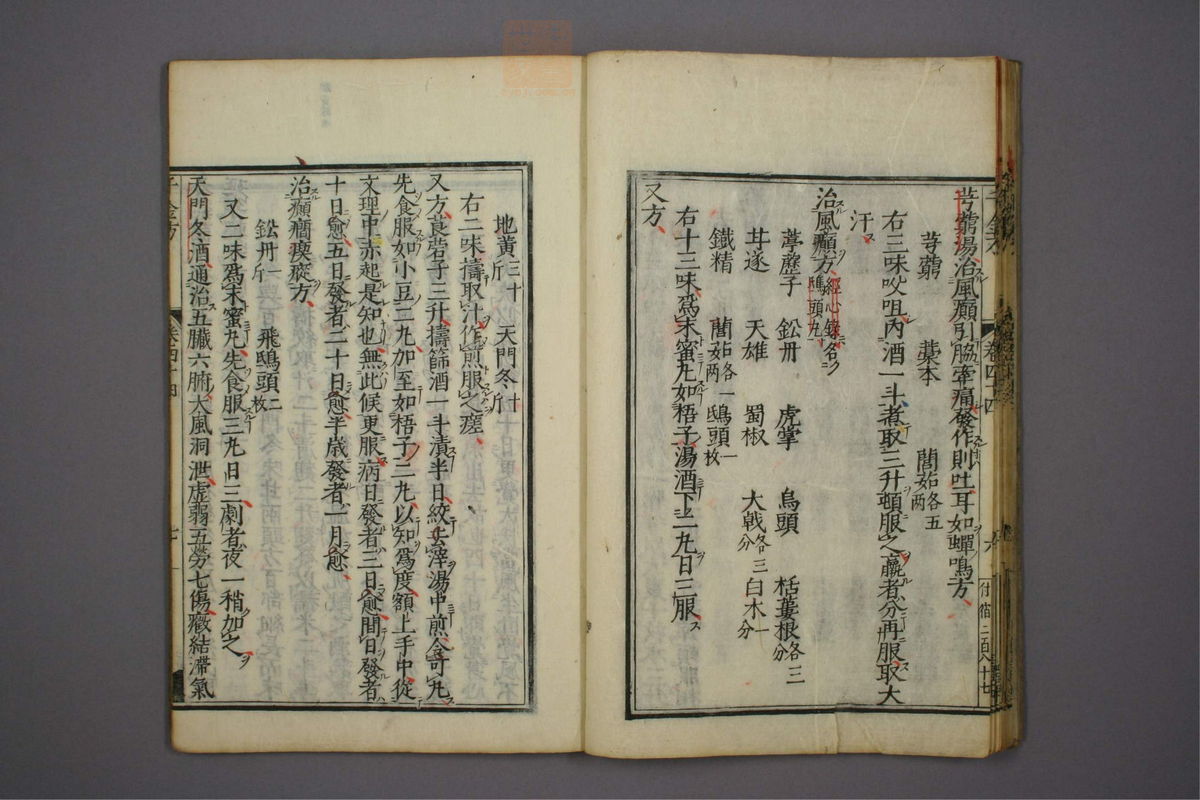 芎藭湯治風癲引脇牽痛發作則吐耳如蟬鳴方
芎藭 藁本 䕡茹各五兩
右三味㕮咀內酒一斗煮取三升頓服之羸者分再服取大
汗
治風癲方經心錄名鴟頭丸
葶藶子 鈆丹 虎掌 烏頭 栝蔞根各三分
甘遂 天雄 蜀椒 大戟各三分 白朮一分
鐵精 䕡茹各一兩 鴟頭一枚
右十三味爲末蜜丸如梧子湯酒下二丸日三服
又方
地黃三十斤 天門冬十斤
右二味擣取汁作煎服之瘥
又方莨菪子三升擣篩酒一斗漬半日絞去滓湯中煎令可丸
先食服如小豆二丸加至如梧子二丸以知爲度額上手中從
文理中赤起是知也無此候更服病日發者三日愈間日發者
十日愈五日發者二十日愈半歲發者一月愈
治癲癎瘈瘲方
鈆丹一斤 飛鴟頭二枚
又二味爲末蜜丸先食服三丸日三劇者夜一稍加之
天門冬酒通治五臟六腑大風洞泄虛弱五勞七傷癥結滯氣
千金方 卷四十四 七
卷四十四 六